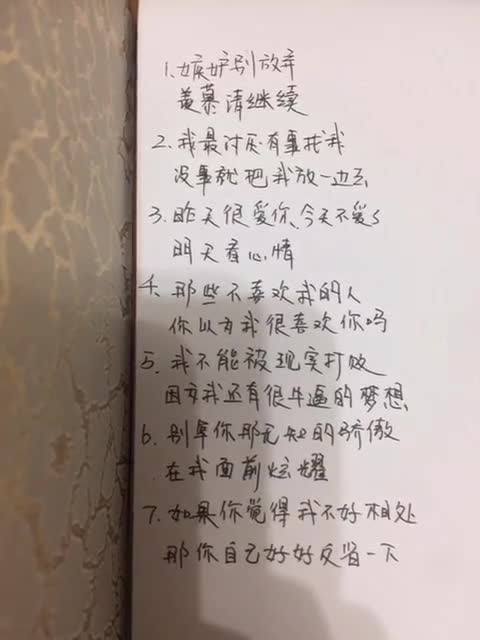 1.嫉妒别放弃
羡慕请继续
2.我最讨厌有事找我
没事就把我放一边去
3.昨天很爱你、今天不爱了
明天看心情
4.那些不喜欢我的人
你以为我很喜欢你吗
5.我不能被现实打败
因为我还有很牛逼的梦想
6.别拿你那无知的骄傲
在我面前炫耀
7.如果你觉得我不好相处
那你自己好好反省一下